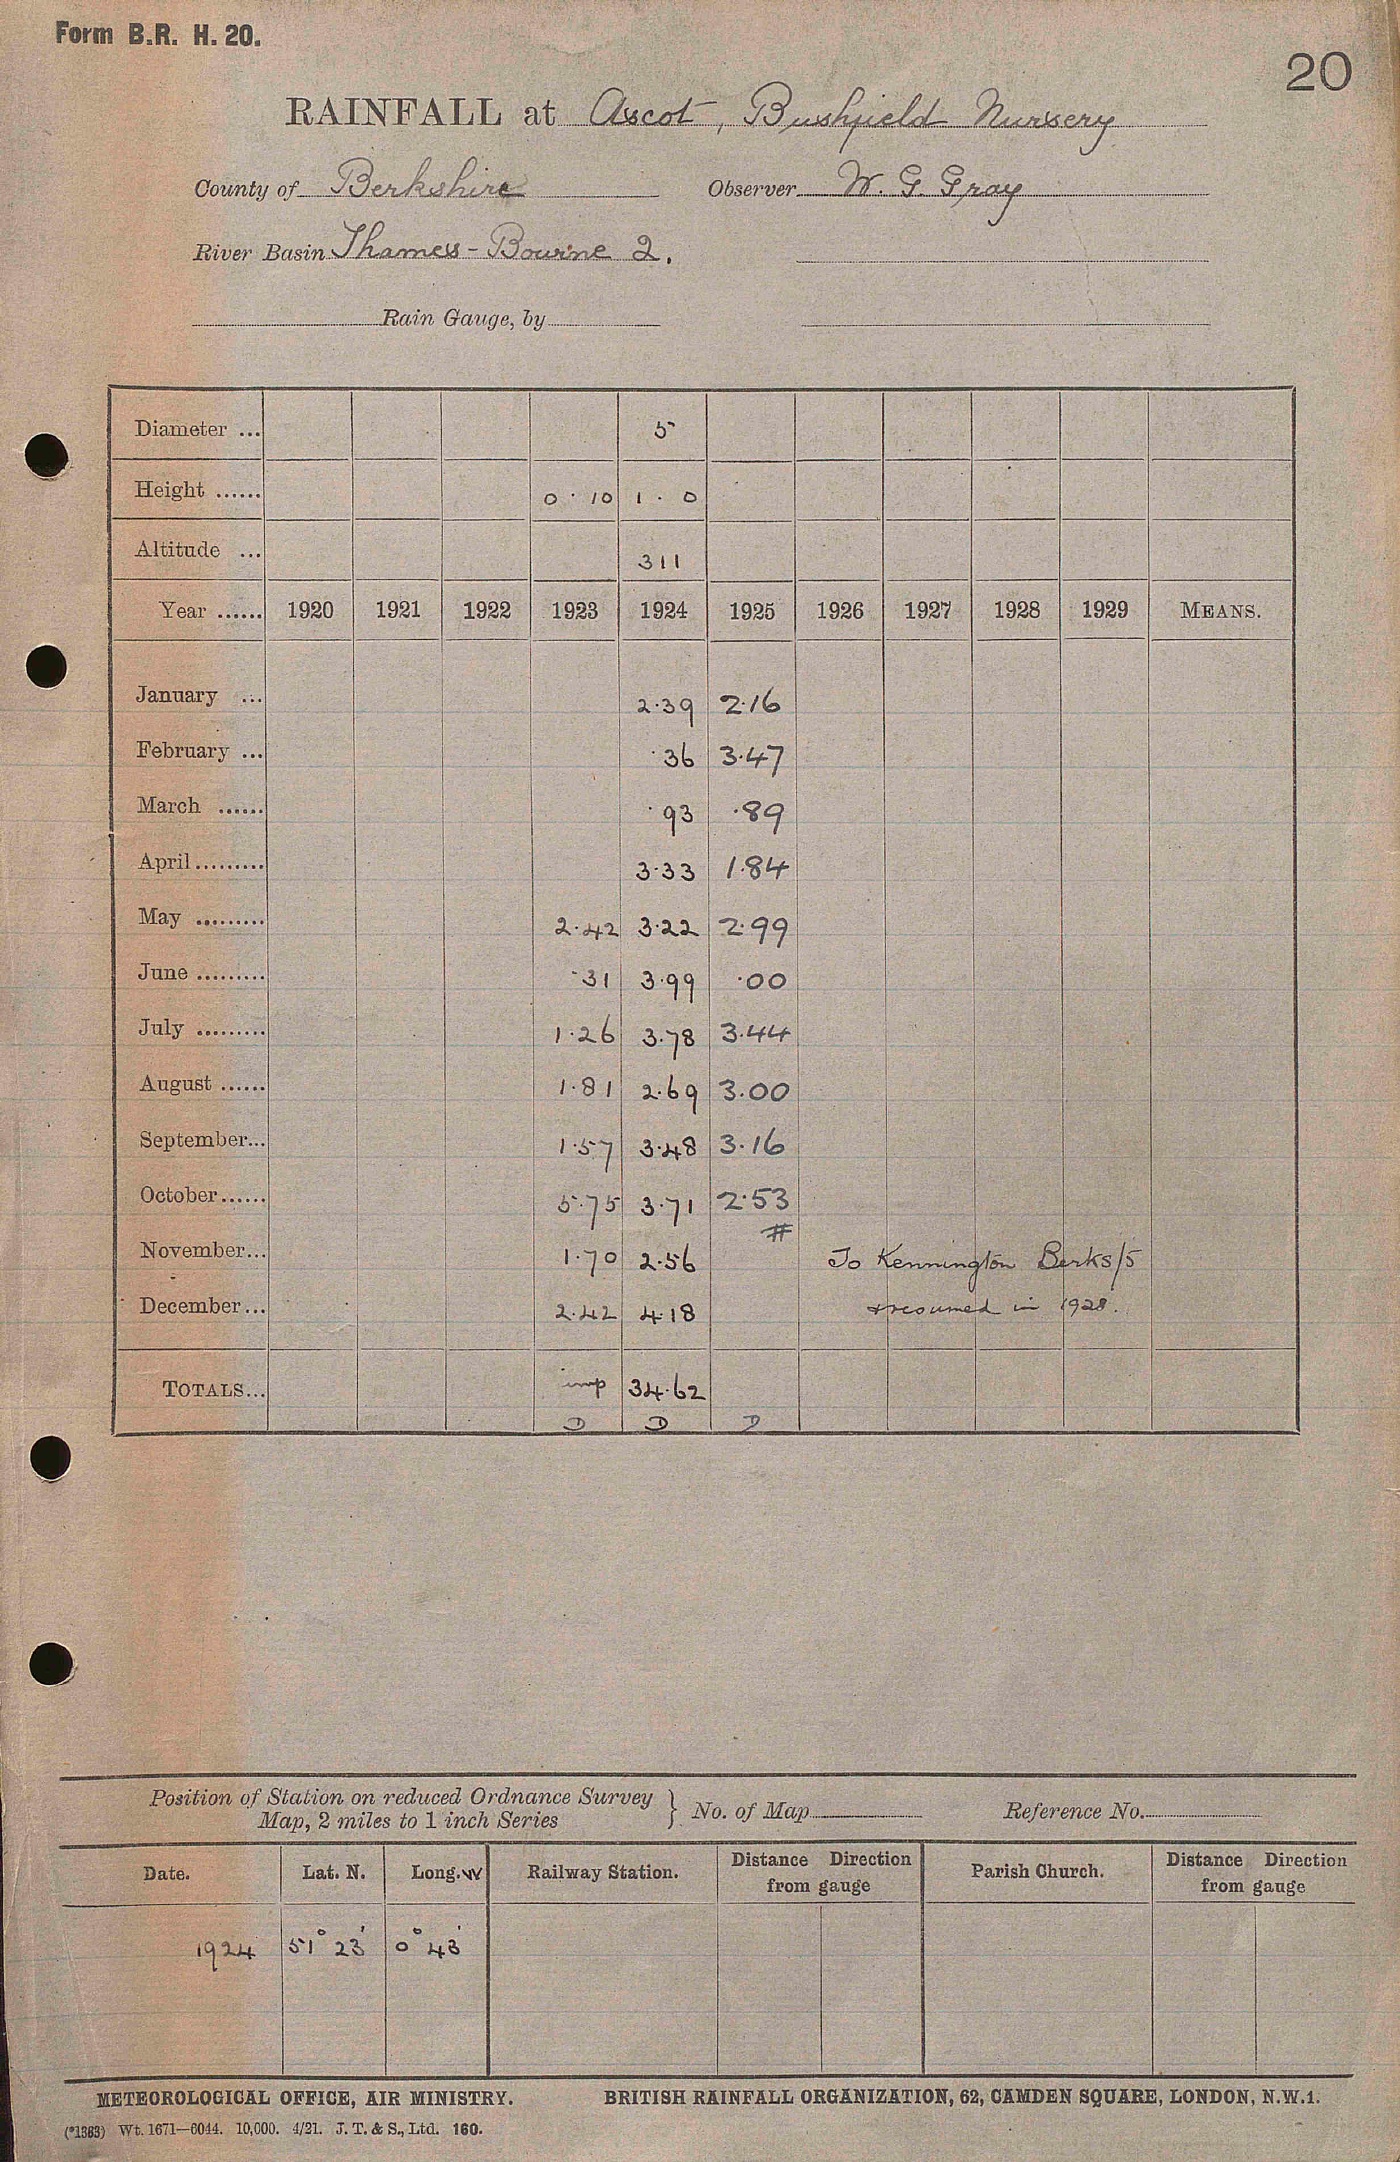 Form B.R. H. 20.
20
RAINFALL at Ascot, Bushfield Nursery
County of Berkshire Observer W. G. Gray
River Basin Thames - Bourne 2.
Rain Gauge, by
Diameter ... 5
Height ...... 0 · 10 1 · 0
Altitude ... 311
Year ...... 1920 1921 1922 1923 1924 1925 1926 1927 1928 1929 MEANS.
January ... 2·39 2·16
February ... ·36 3·47
March ...... ·93 ·89
April......... 3·33 1·84
May ......... 2·42 3·22 2·99
June ......... ·31 3·99 ·00
July ......... 1·26 3·78 3·44
August ...... 1·81 2·69 3·00
September... 1·57 3·48 3·16
October...... 5·75 3·71 2·53
#
November... 1·70 2·56 To Kennington Berks/5
December... 2·42 4·18 & resumed in 1928.
TOTALS... imp 34·62
D D D
Position of Station on reduced Ordnance Survey
Map, 2 miles to 1 inch Series } No. of Map Reference No.
Date. Lat. N. Long. W Railway Station. Distance Direction from gauge Parish Church. Distance Direction from gauge
1924 51° 23' 0° 43'
METEOROLOGICAL OFFICE, AIR MINISTRY. BRITISH RAINFALL ORGANIZATION, 62, CAMDEN SQUARE, LONDON, N.W.1.
(*1383) Wt. 1671—6044. 10,000. 4/21. J. T. & S., Ltd. 160.